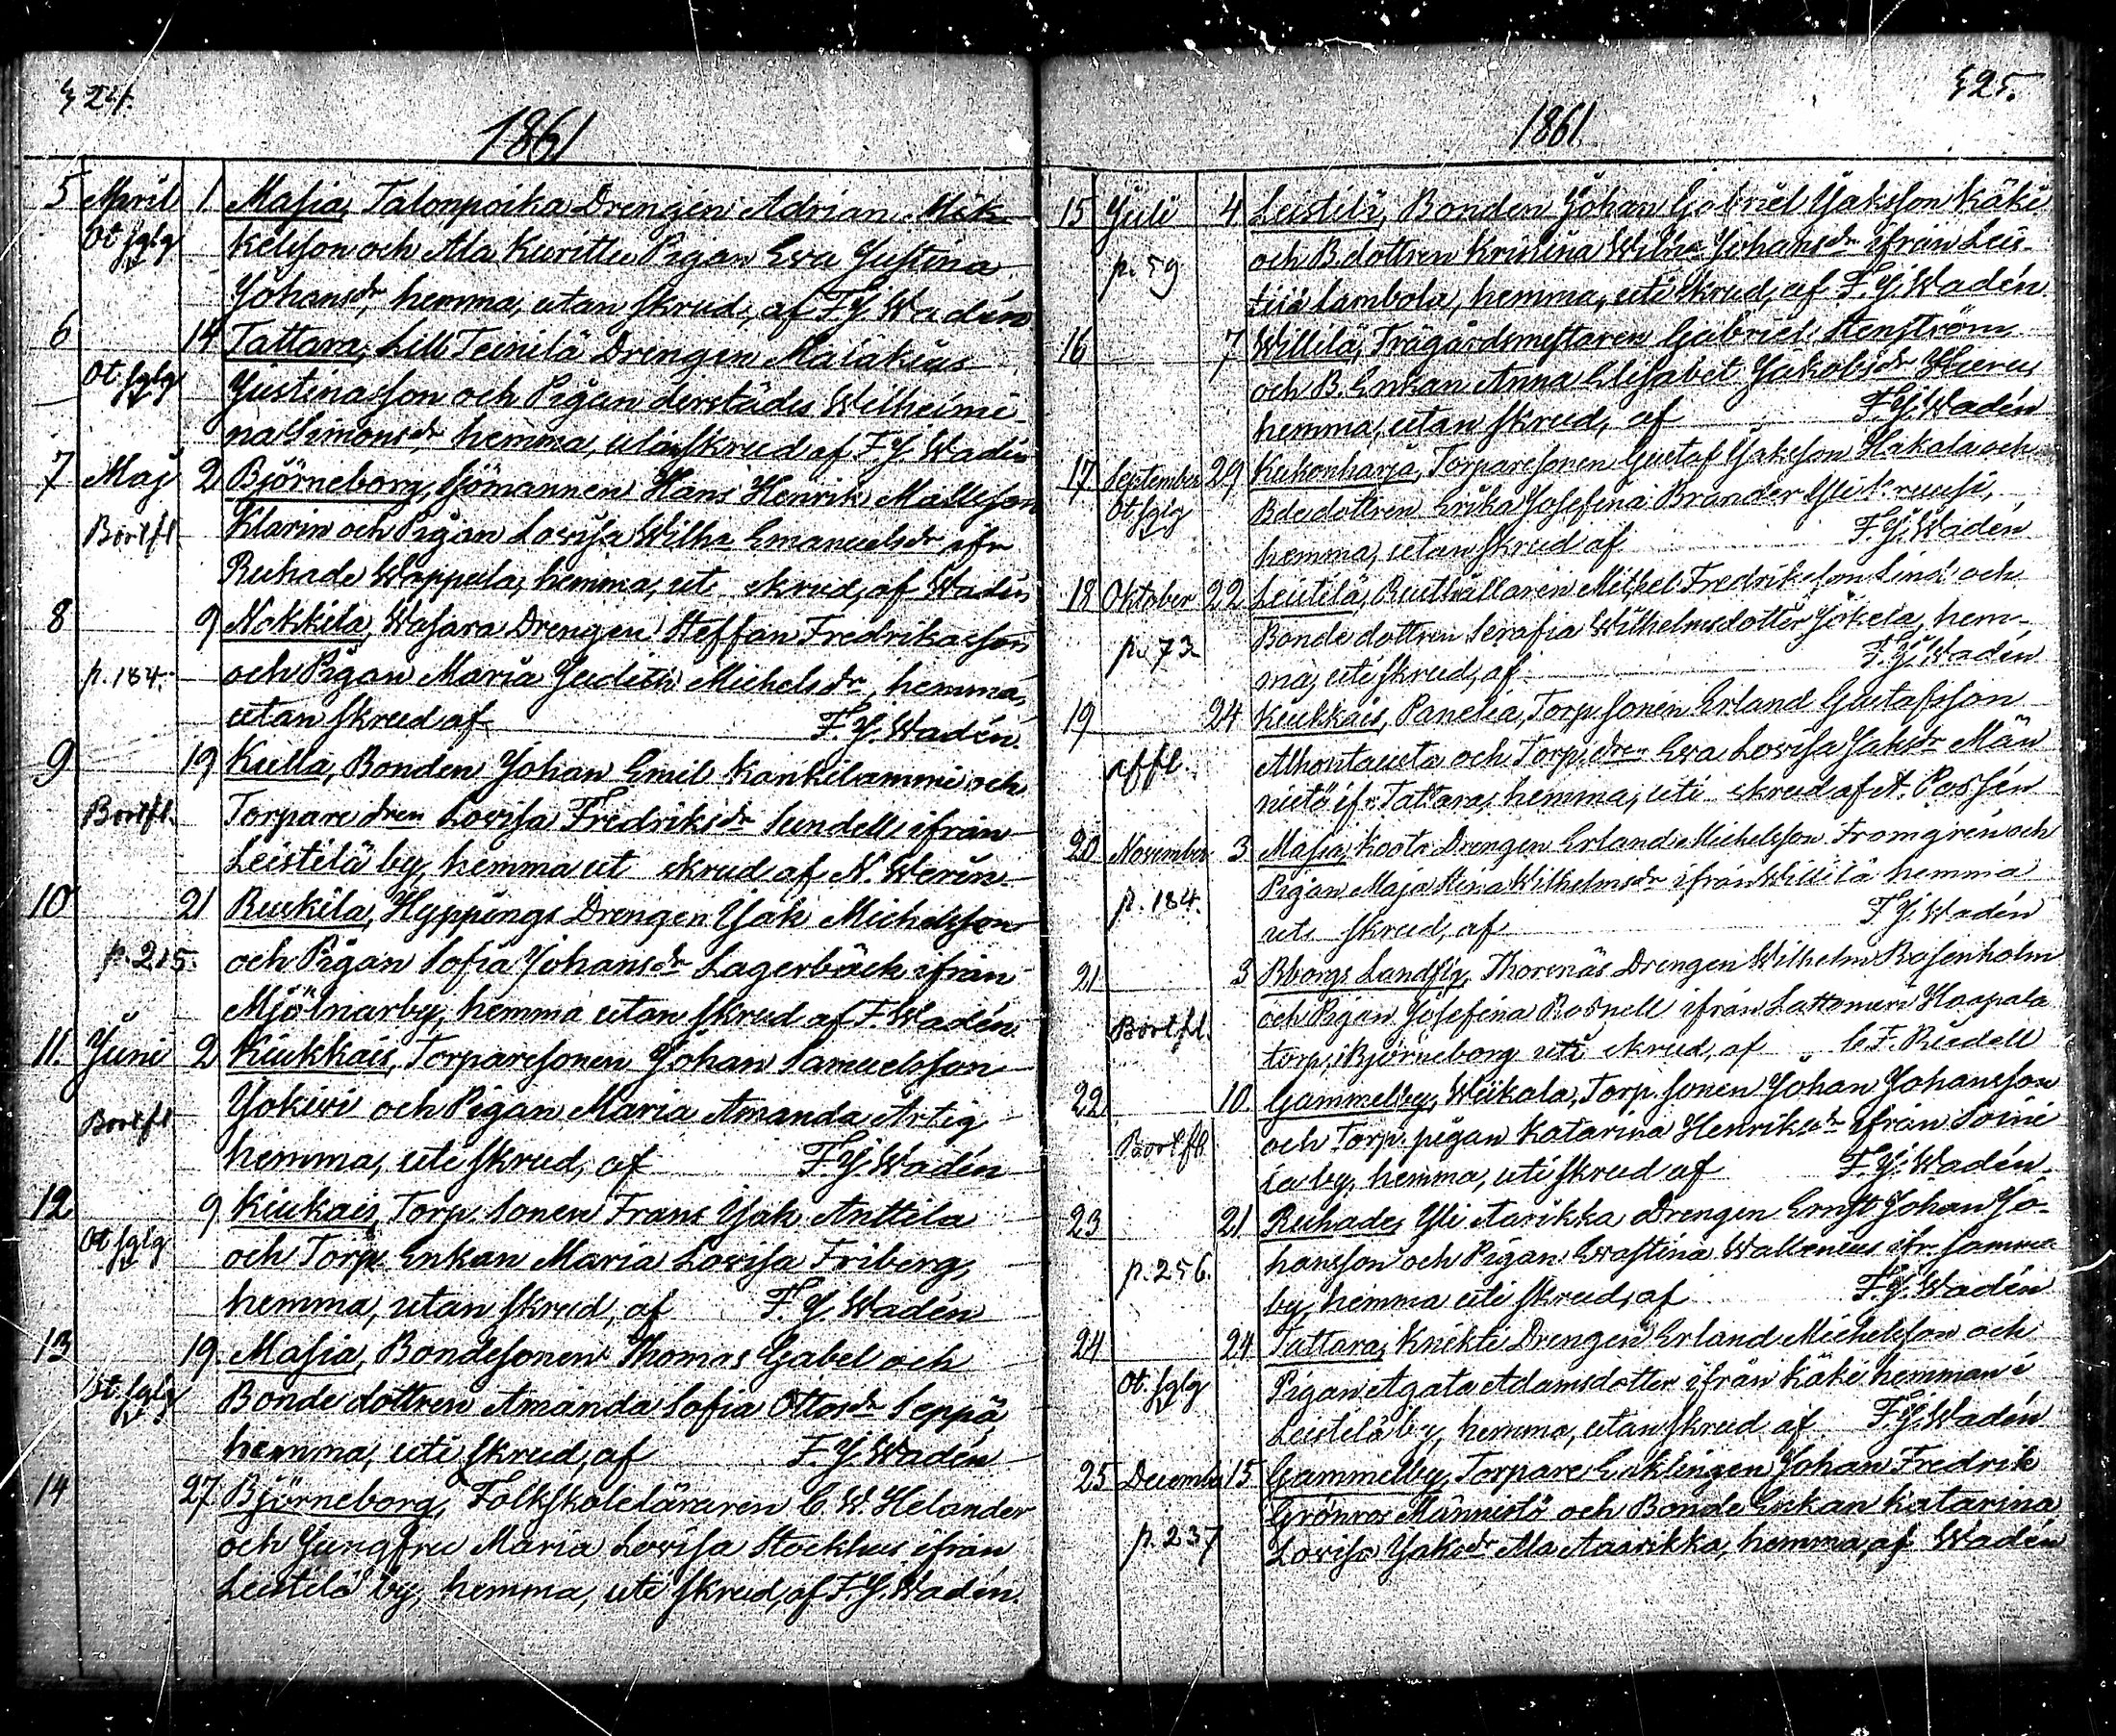 524.
1861
5 April 1. Masia, Talonpoika Drengen Adrian Mik-
Ot. sglg kelsson och Ala Kuritte Pigan Eva Justina
Johansdr, hemma, utan skrud, af F. J. Wadén
6 14 Tattara, Lill Teinilä Drengen Malakias
Ot. sglg Justinasson och Pigan derstädes Wilheimi-
na Simonsdr, hemma, utan skrud af F. J. Wadén
7 Maj 2 Björneborg, Sjömannen Hans Henrik Mattsson
Bortfl. Klarin och Pigan Lovisa Wilha Emanuelsdr ifr
Ruhade Wappula, hemma, uti skrud, af Wadén
8 9 Nakkila, Wasara Drengen Steffan Fredriksson
p. 184. och Pigan Maria Judith Michelsdr, hemma,
utan skrud af F. J. Wadén.
9 19 Kulla, Bonden Johan Emil Kankilammi och
Bortfl. Torpare dren Lovisa Fredriksdr Sundell ifrån
Leistilä by, hemma ut skrud af N. Werén
10 21 Ruskila, Hyppings Drengen Jak Michelsson
p. 215. och Pigan Sofia Johansdr Lagerbäck ifrån
Mjölnarby, hemma utan skrud af F. Wadén.
11. Juni 2 Kiukkais, Torparesonen Johan Samuelsson
Bortfl Jokivi och Pigan Maria Amanda Artig
hemma, uti skrud, af F. J. Wadén
12 9 Kiukais, Torp. Sonen Frans Jak Anttila
Ot sglg och Torp. Enkan Maria Lovisa Friberg,
hemma, utan skrud, af F. J. Wadén
13 19. Masia, Bondesonen Thomas Gabel och
Ot. sglg Bonde dottren Amanda Sofia Ottosdr Seppä,
hemma, uti skrud, af F. J. Wadén
14 27 Björneborg, Folkskoleläraren C. W. Helander
och Jungfru Maria Lovisa Stockhus ifrån
Leistilä by, hemma, uti skrud, af F. J. Wadén.
525.
1861.
15 Juli 4. Leistilä, Bonden Johan Gabriel Jaksson Käki
p. 59 och B. dottren Kristina Wilha Johansdr ifrån Leis-
tilä Lambola, hemma, uti skrud, af F. J. Wadén
16 7 Willilä, Trägårdsmästaren Gabriel Stenström
och B. Enkan Anna Elisabet Jakobsdr
hemma, utan skrud, af F. J. Wadén
17 September 29 Kukonharja, Torparesonen Gustaf Jaksson Hakala och
Ot. sglg Bde dottren Erika Josefina Brander
hemma, utan skrud af F. J. Wadén
18 Oktober 22 Leistilä, Rusthållaren Michel Fredriksson Lind och
p. 73 Bonde dottren Serafia Wilhelmsdotter Jokela, hem-
ma, uti skrud, af F. J. Wadén
19 24 Kiukkais, Panelia, Torp. sonen Erland Gustafsson
affl. Ahontausta och Torp. dren Eva Lovisa Jaksdr Män
nistö if. Tattara, hemma, uti skrud af A. Possén
20 November 3 Masia, Koota Drengen Erland Michelsson Fromgrén och
p. 184. Pigan Maja Stina Wilhelmsdr ifrån Willilä hemma
uti skrud, af F. J. Wadén
21 3 Bborgs Landsfg, Thorenäs Drengen Wilhelm Rosenholm
Bortfl. och Pigan Josefina Rosnell ifrån Lattomeri Haapala
torp, i Björneborg uti skrud, af C. F. Rudell
22 10 Gammelby, Wiikala, Torp. sonen Johan Johansson
Bortfl och Torp. pigan Katarina Henriksdr ifrån Soini
la by, hemma, uti skrud af F. J. Wadén.
23 21 Ruhade, Yli Aarikka Drengen Ernst Johan Jo-
p. 256. hansson och Pigan Evastina Wallenius ifr. samma
by, hemma uti skrud, af F. J. Wadén
24 24 Tattara, Knekti Drengen Erland Michelsson och
Ot. sglg Pigan Agata Adamsdotter ifrån Käki hemman i
Leistilä by, hemma, utan skrud af F. J. Wadén
25 December 15 Gammelby, Torpare Enklingen Johan Fredrik
p. 237 Grönros Männistö och Bonde Enkan Katarina
Lovisa Jaksdr Ala Aarikka, hemma, af Wadén